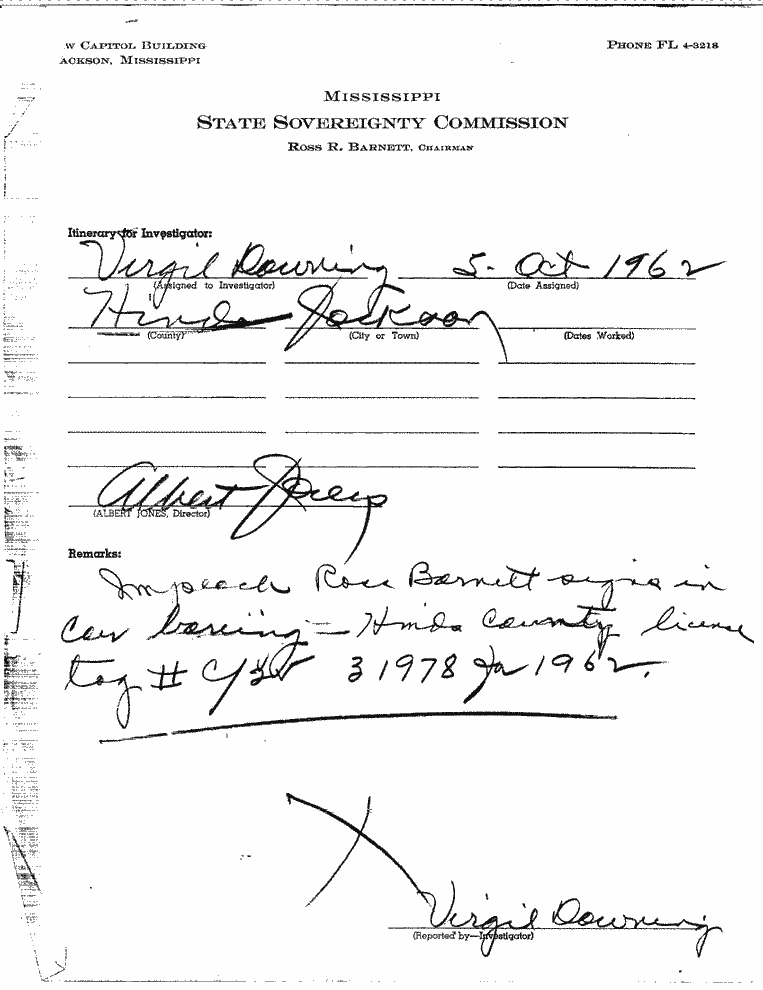 W CAPITOL BUILDING
ACKSON, MISSISSIPPI
PHONE FL 4-3218
MISSISSIPPI
STATE SOVEREIGNTY COMMISSION
ROSS R. BARNETT, CHAIRMAN
Itinerary for Investigator:
Virgil Downing 5- Oct 1962
(Assigned to Investigator) (Date Assigned)
Hinds Jackson
(County) (City or Town) (Dates Worked)
Albert Jones
(ALBERT JONES, Director)
Remarks:
Impeach Ross Barnett signs in
car - Hinds County license
tag # 31978 for 1962.
Virgil Downing
(Reported by—Investigator)